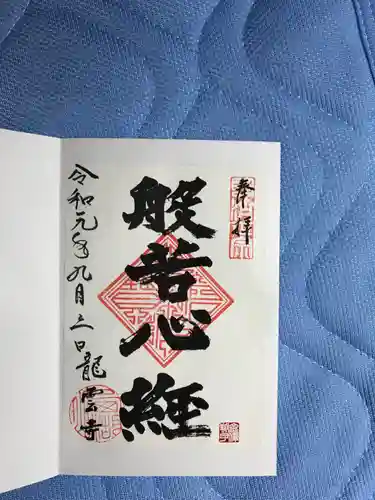 奉拝
般若心経
令和元年九月三日龍雲寺